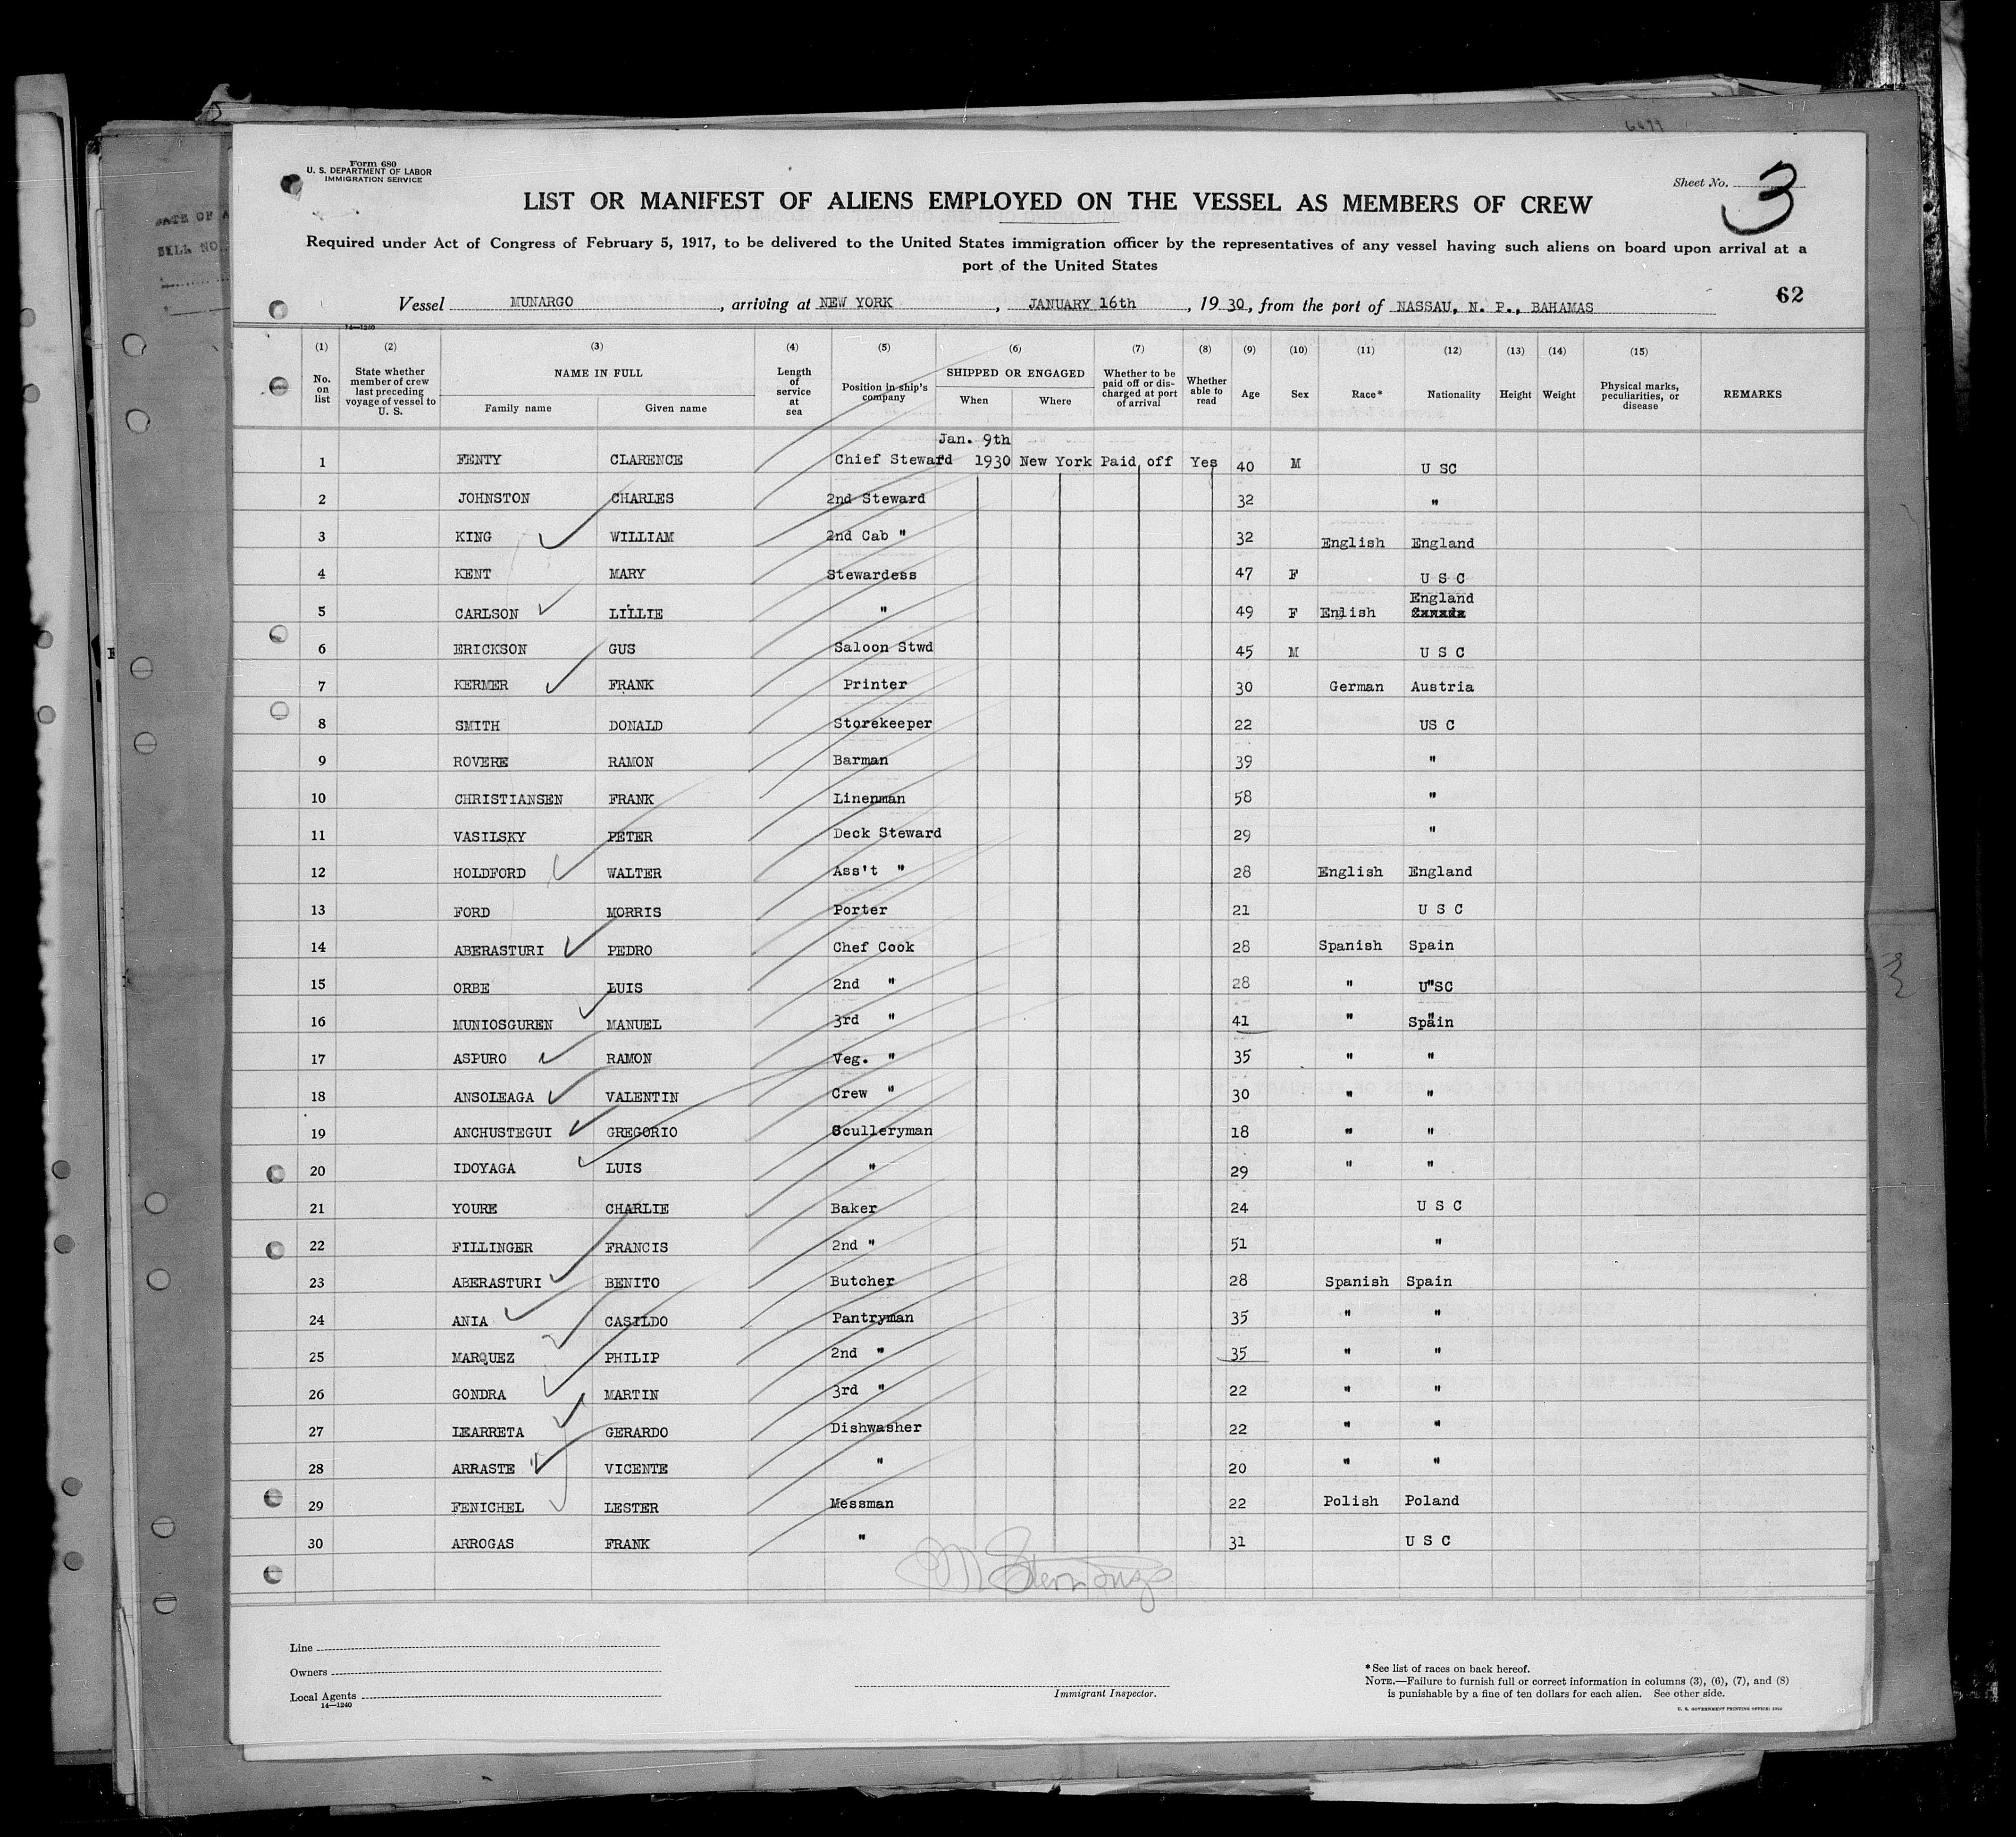 Form 680
U. S. DEPARTMENT OF LABOR
IMMIGRATION SERVICE
Sheet No. 3
LIST OR MANIFEST OF ALIENS EMPLOYED ON THE VESSEL AS MEMBERS OF CREW
Required under Act of Congress of February 5, 1917, to be delivered to the United States immigration officer by the representatives of any vessel having such aliens on board upon arrival at a
port of the United States
62
Vessel MUNARGO, arriving at NEW YORK, JANUARY 16th, 19 30, from the port of NASSAU, N. P., BAHAMAS
14—1240
(1) (2) (3) (4) (5) (6) (7) (8) (9) (10) (11) (12) (13) (14) (15)
No. on list State whether member of crew last preceding voyage of vessel to U. S. NAME IN FULL Family name Given name Length of service at sea Position in ship's company SHIPPED OR ENGAGED When Where Whether to be paid off or discharged at port of arrival Whether able to read Age Sex Race* Nationality Height Weight Physical marks, peculiarities, or disease REMARKS
Jan. 9th
1 FENTY CLARENCE Chief Steward 1930 New York Paid off Yes 40 M U SC
2 JOHNSTON CHARLES 2nd Steward 32 "
3 KING WILLIAM 2nd Cab " 32 English England
4 KENT MARY Stewardess 47 F U S C
England
5 CARLSON LILLIE " 49 F Enlish Canada
6 ERICKSON GUS Saloon Stwd 45 M U S C
7 KERMER FRANK Printer 30 German Austria
8 SMITH DONALD Storekeeper 22 US C
9 ROVERE RAMON Barman 39 "
10 CHRISTIANSEN FRANK Linenman 58 "
11 VASILSKY PETER Deck Steward 29 "
12 HOLDFORD WALTER Ass't " 28 English England
13 FORD MORRIS Porter 21 U S C
14 ABERASTURI PEDRO Chef Cook 28 Spanish Spain
15 ORBE LUIS 2nd " 28 " U"SC
16 MUNIOSGUREN MANUEL 3rd " 41 " Spain
17 ASPURO RAMON Veg. " 35 " "
18 ANSOLEAGA VALENTIN Crew " 30 " "
19 ANCHUSTEGUI GREGORIO Sculleryman 18 " "
20 IDOYAGA LUIS " 29 " "
21 YOURE CHARLIE Baker 24 U S C
22 FILLINGER FRANCIS 2nd " 51 "
23 ABERASTURI BENITO Butcher 28 Spanish Spain
24 ANIA CASILDO Pantryman 35 " "
25 MARQUEZ PHILIP 2nd " 35 " "
26 GONDRA MARTIN 3rd " 22 " "
27 LEARRETA GERARDO Dishwasher 22 " "
28 ARRASTE VICENTE " 20 " "
29 FENICHEL LESTER Messman 22 Polish Poland
30 ARROGAS FRANK " 31 U S C
Line
Owners
Local Agents
14—1240
Immigrant Inspector.
*See list of races on back hereof.
NOTE.—Failure to furnish full or correct information in columns (3), (6), (7), and (8)
is punishable by a fine of ten dollars for each alien. See other side.